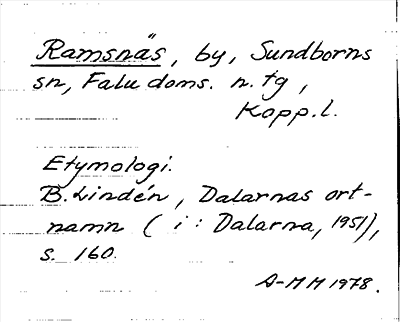 Ramsnäs, by, Sundborns
sn, Falu doms. n. tg,
Kopp.l.
Etymologi.
B. Lindén, Dalarnas ort-
namn (i: Dalarna, 1951),
s. 160.
A-MH 1978.